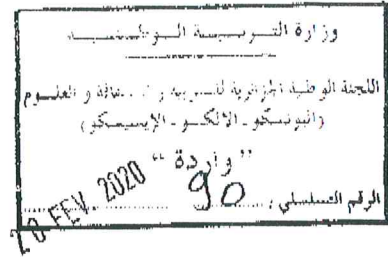 وزارة التربية الوطنية
اللجنة الوطنية الجزائرية للتربية و الثقافة و العلوم
(اليونسكو - الالكسو - الإيسيسكو)
"واردة"
20 FEV. 2020
الرقم التسلسلي : 90